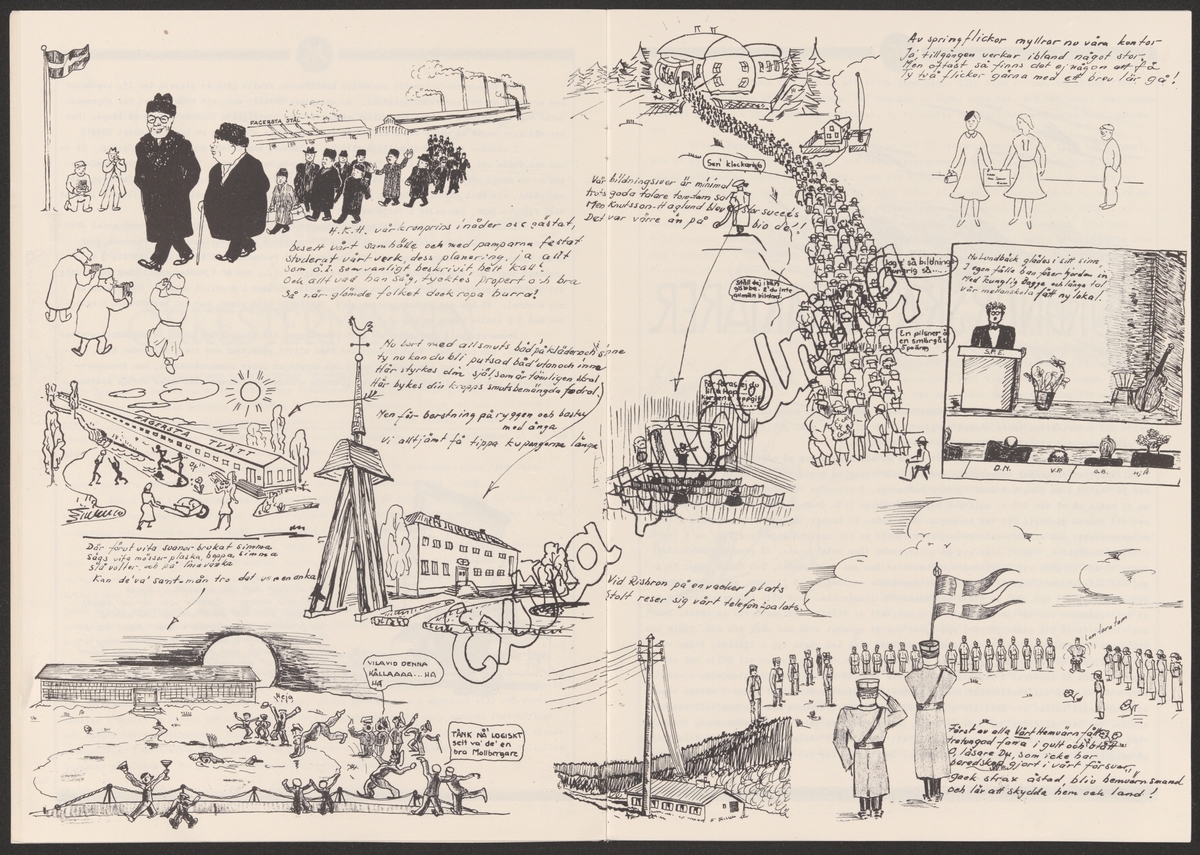 FAGERSTA STÅL
H.K.H. vår kronprins i nåder oss gästat,
besett vårt samhälle och med pamparna festat
studerat vårt verk, dess planering, ja allt
som ö.i. som vanligt beskrivit helt kall.
Och allt vad han såg, tycktes propert och bra
Så när glömde folket dock ropa hurra!
Nu bort med all smuts båd' på kläder och sinne
ty nu kan du bli putsad båd' utan och inne
Här styrkes din själ som är tämligen skral
Här bykes din kropps smutsbemängda fodral
Men får borstning på ryggen och bastu
med ånga
Vi alltjämt få tippa kupongerna långa
FAGERSTA TVÄTT
Där förut vita svanor brukat simma
Sågs vita mössor plaska, hoppa, simma
slå volter och på lina vanka
Kan de' va' sant månn tro det var en anka
Heja
VILA VID DENNA
KÄLLAAAA... HA
HA
TÄNK NÅ LOGISKT
sett va' de' en
bra Mollbergare
Gravda
Av springflickor myllrar nu våra kontor
Ja, tillgången verkar ibland något stor,
Men oftast så finns det ej någon att få
Ty två flickor gärna med ett brev lär gå!
Ser'i klockargub
Vår bildningsiver är minimal
trots goda talare tom tom sal
Men Knutsson-Haglund blev stor succès
Det var värre än på bio de'!!
Jag ä' så bildnings
hungrig så...
Ställ dej i kön
gubbe. Ä' du inte
allmän bildad.
En pilsner å
en smörgås
Spelärn
Nu Lundbäck glädes i sitt sinn,
I egen fålla han föser hjorden in
Med kunglig Bagge och långa tal
vår mellanskola fått ny lokal.
S.M.E.
D.M.
V.P.
G.B.
Hj Å
Vid Risbron på en vacker plats
Stolt reser sig vårt telefonpalats.
tam tara tam
Först av alla Vårt Hemvärn fått
tretungad fana i gult och blått
O, läsare Du, som icke har
beredskap gjort i vårt försvar,
gack strax åstad, bliv hemvärnsmand
och lär att skydda hem och land!